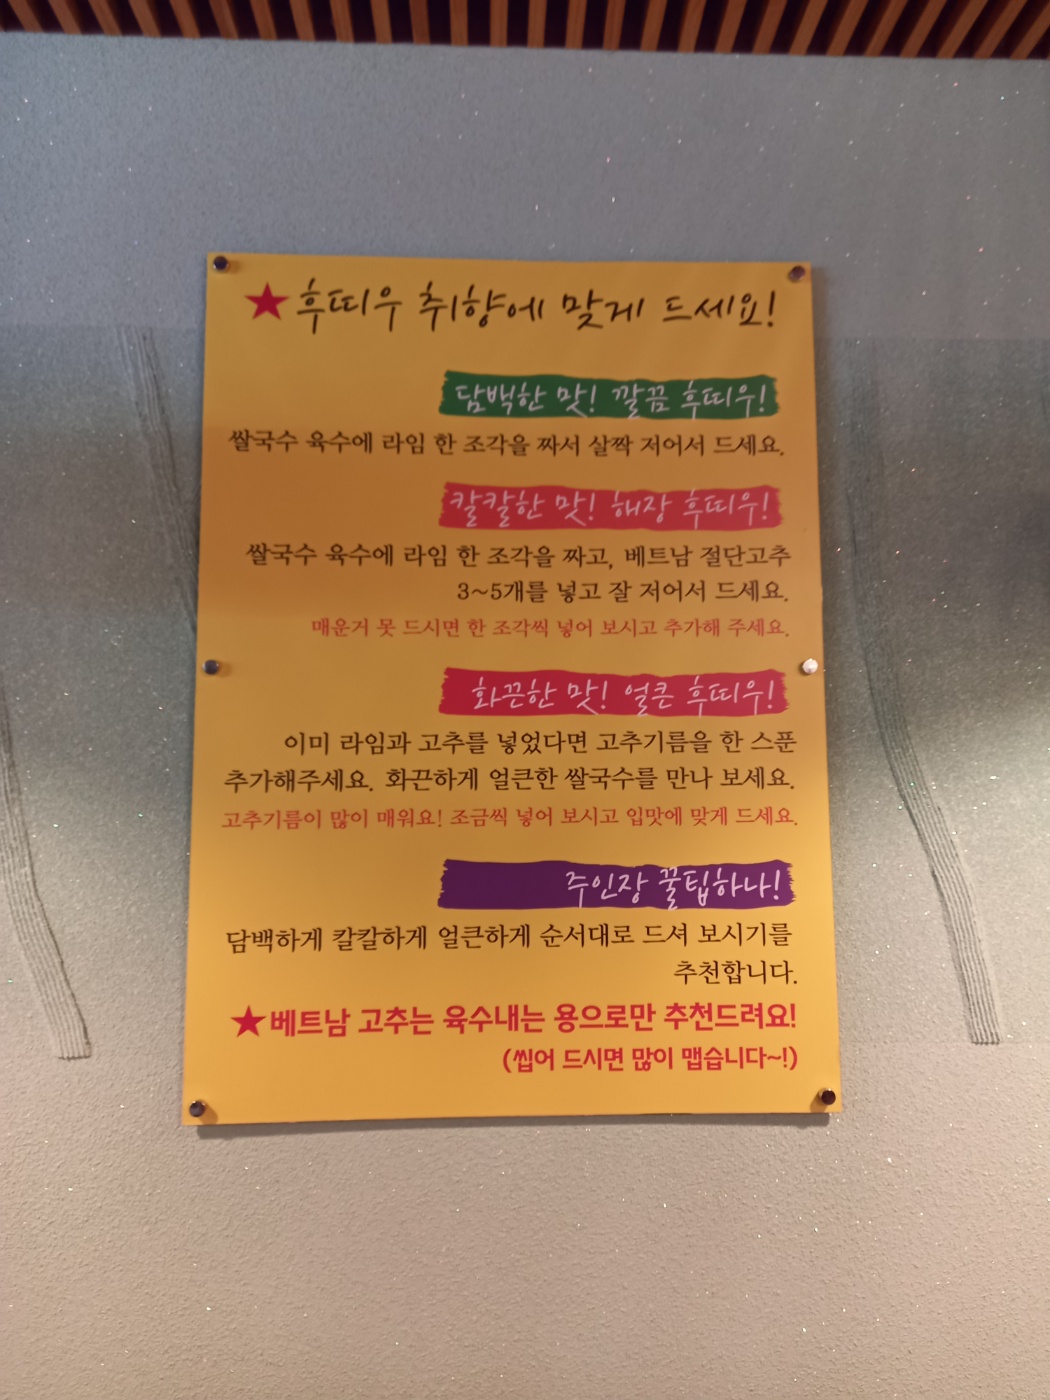 ★후띠우 취향에 맞게 드세요!
담백한 맛! 깔끔 후띠우!
쌀국수 육수에 라임 한 조각을 짜서 살짝 저어서 드세요.
칼칼한 맛! 해장 후띠우!
쌀국수 육수에 라임 한 조각을 짜고, 베트남 절단고추
3~5개를 넣고 잘 저어서 드세요.
매운거 못 드시면 한 조각씩 넣어 보시고 추가해 주세요.
화끈한 맛! 얼큰 후띠우!
이미 라임과 고추를 넣었다면 고추기름을 한 스푼
추가해주세요. 화끈하게 얼큰한 쌀국수를 만나 보세요.
고추기름이 많이 매워요! 조금씩 넣어 보시고 입맛에 맞게 드세요.
주인장 꿀팁하나!
담백하게 칼칼하게 얼큰하게 순서대로 드셔 보시기를
추천합니다.
★베트남 고추는 육수내는 용으로만 추천드려요!
(씹어 드시면 많이 맵습니다~!)